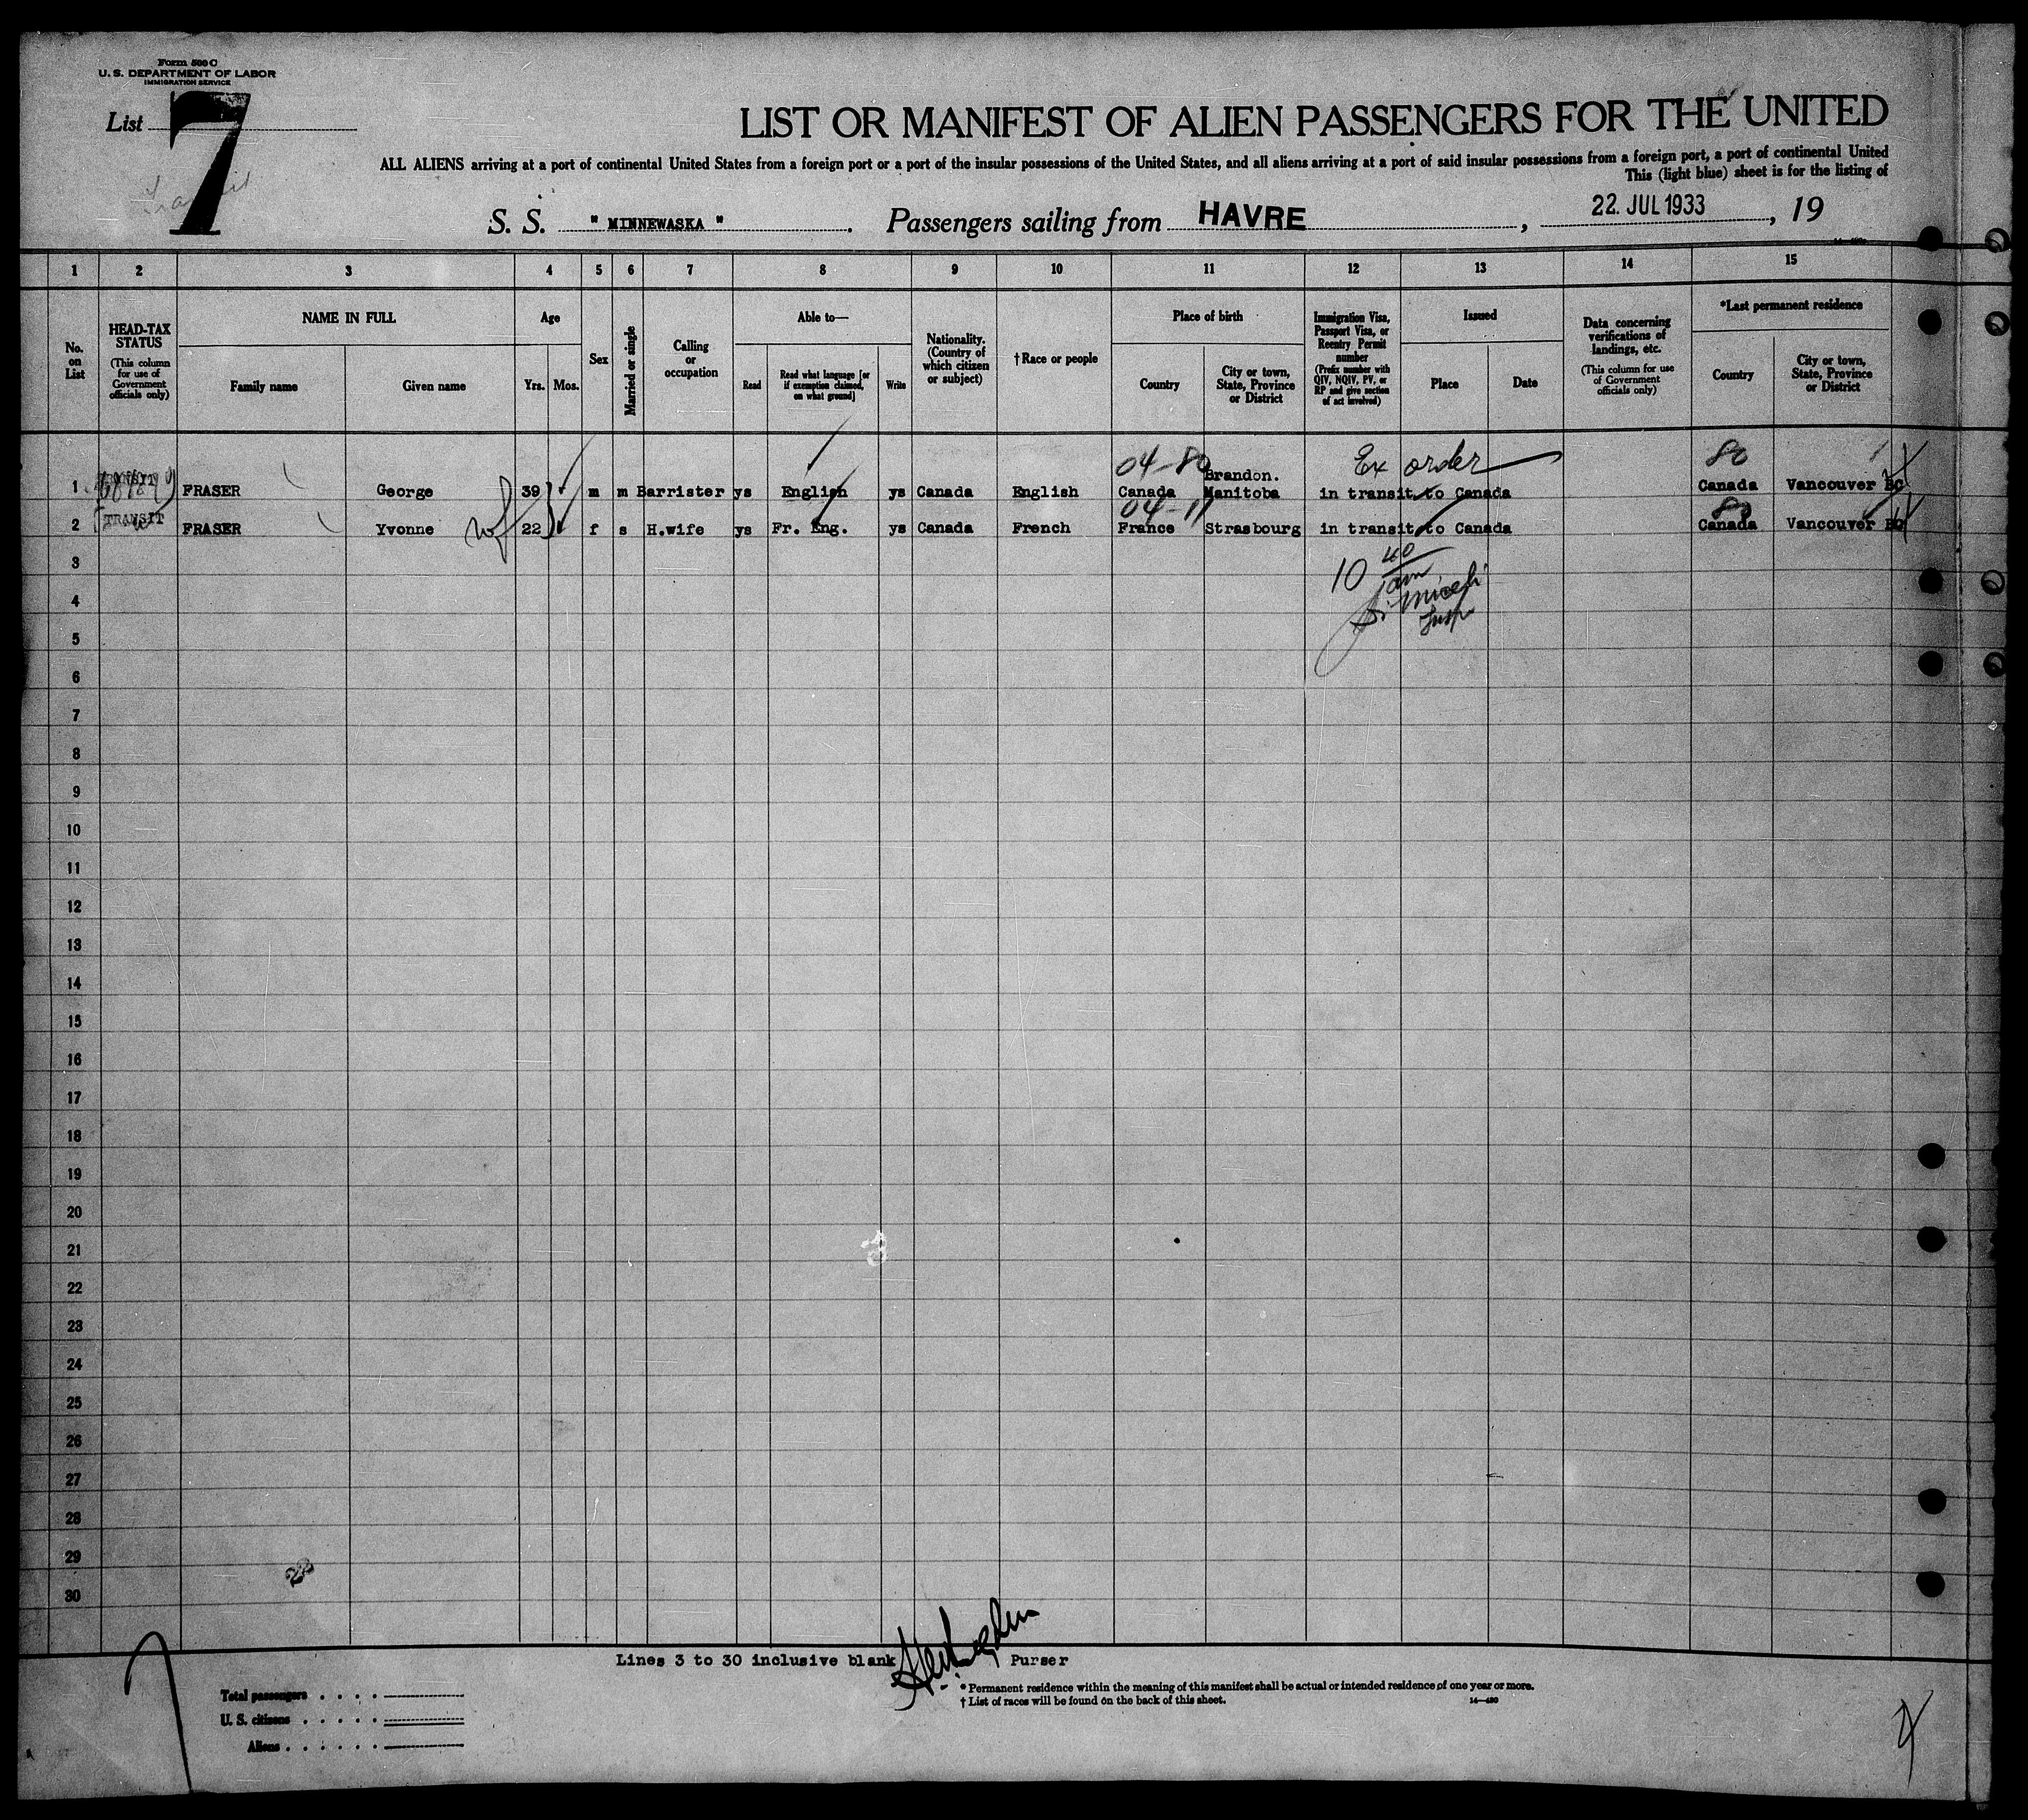 Form 500 C
U. S. DEPARTMENT OF LABOR
IMMIGRATION SERVICE
List 7
LIST OR MANIFEST OF ALIEN PASSENGERS FOR THE UNITED
ALL ALIENS arriving at a port of continental United States from a foreign port or a port of the insular possessions of the United States, and all aliens arriving at a port of said insular possessions from a foreign port, a port of continental United
This (light blue) sheet is for the listing of
S. S. " MINNEWASKA ". Passengers sailing from HAVRE, 22. JUL 1933, 19
1 2 3 4 5 6 7 8 9 10 11 12 13 14 15
No. on List
HEAD-TAX STATUS (This column for use of Government officials only)
NAME IN FULL
Family name Given name
Age
Yrs. Mos.
Sex
Married or single
Calling or occupation
Able to—
Read Read what language [or if exemption claimed, on what ground] Write
Nationality. (Country of which citizen or subject)
†Race or people
Place of birth
Country City or town, State, Province or District
Immigration Visa, Passport Visa, or Reentry Permit number (Prefix number with QIV, NQIV, PV, or RP and give section of act involved)
Issued
Place Date
Data concerning verifications of landings, etc. (This column for use of Government officials only)
*Last permanent residence
Country City or town, State, Province or District
04-80 Ex order 80
1 TRANSIT FRASER George 39 m m Barrister ys English ys Canada English Canada Brandon. Manitoba in transit to Canada Canada Vancouver BC
04-11 80
2 TRANSIT FRASER Yvonne wf 22 f s H.wife ys Fr. Eng. ys Canada French France Strasbourg in transit to Canada Canada Vancouver BC
3 10 40 am
4
Insp
5
6
7
8
9
10
11
12
13
14
15
16
17
18
19
20
21
22
23
24
25
26
27
28
29
30
Lines 3 to 30 inclusive blank Purser
Total passengers
U. S. citizens
Aliens
* Permanent residence within the meaning of this manifest shall be actual or intended residence of one year or more.
† List of races will be found on the back of this sheet. 14—480